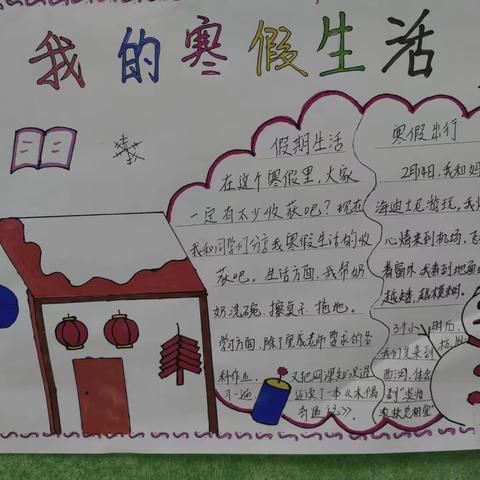 我的寒假生活
假期生活
在这个寒假里，大家
一定有不少收获吧？现在
我和同学们分享我寒假生活的收
获吧。生活方面，我帮奶
奶洗碗、擦桌子、拖地。
学习方面，除了完成老师要求的各
科作业，又把网课知识过
了一遍，还读了一本《木偶
奇遇记》。
寒假出行
2月14日，我和妈
海迪士尼游玩，我
心情来到机场，飞
着窗外，我看到地面
越矮，越模糊。
3个小时后，
我们先来到
西湖，体会
到"淡妆
浓抹总相宜"